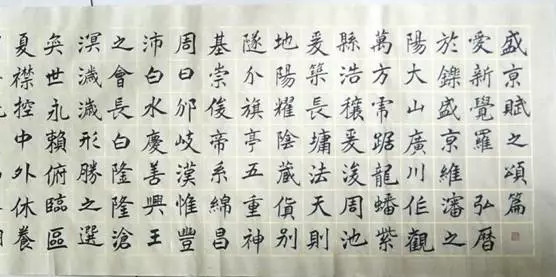 盛京賦之頌篇
愛新覺羅 弘曆
於鑠盛京維瀋之
陽大山廣川作觀
萬方虎踞龍蟠紫
縣浩穰爰浚周池
爰築長墉法天則
地陽耀陰藏貨別
隧分旗亭五重神
基崇俊帝系綿昌
周曰邠岐漢惟豐
沛白水慶善興王
之會長白隆隆滄
溟濊濊形勝之選
奕世永賴俯臨區
夏襟控中外休養